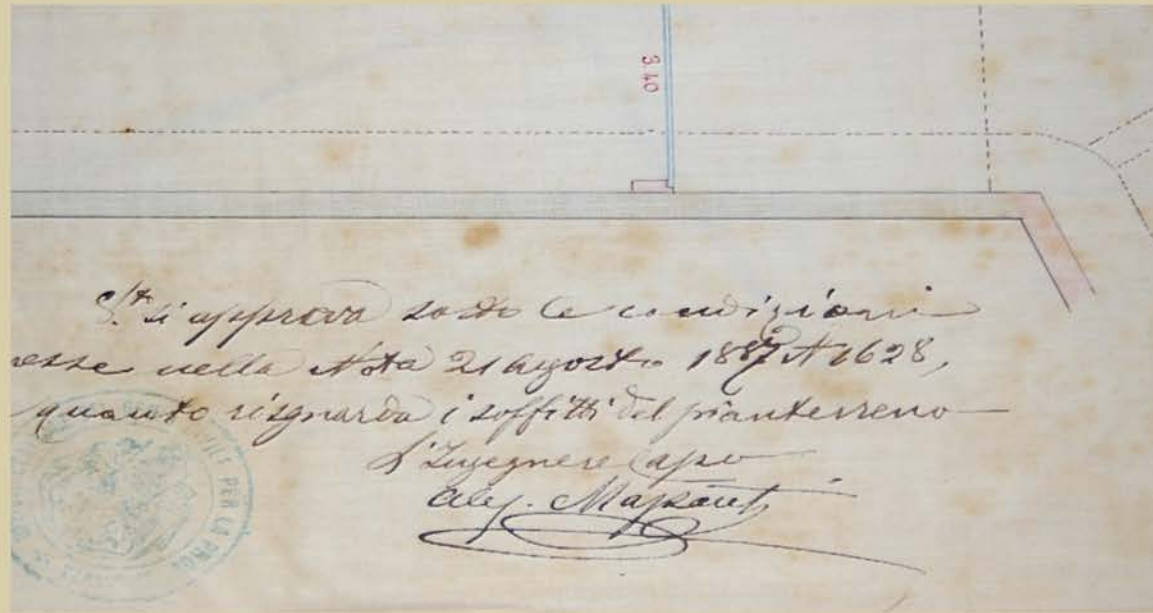 3.40
si approva sotto le condizioni
esse nella Nota 21 agosto 1887 N 1628,
quanto risguarda i soffitti del pianterreno
L'Ingegnere Capo
PER LA PROV